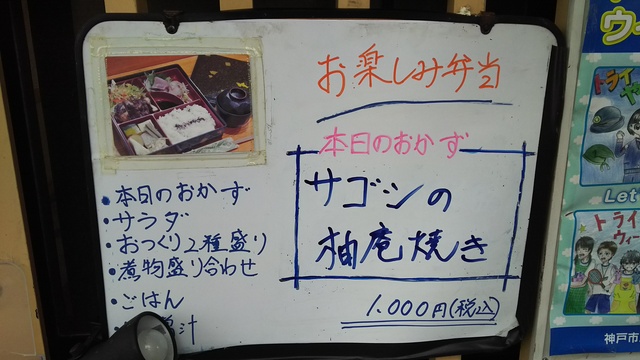 お楽しみ弁当
本日のおかず
サゴシの
柚庵焼き
・本日のおかず
・サラダ
・おつくり2種盛り
・煮物盛り合わせ
・ごはん
汁
1.000円(税込)
ウィ
トライ
Let
トライ
ウィー
神戸市